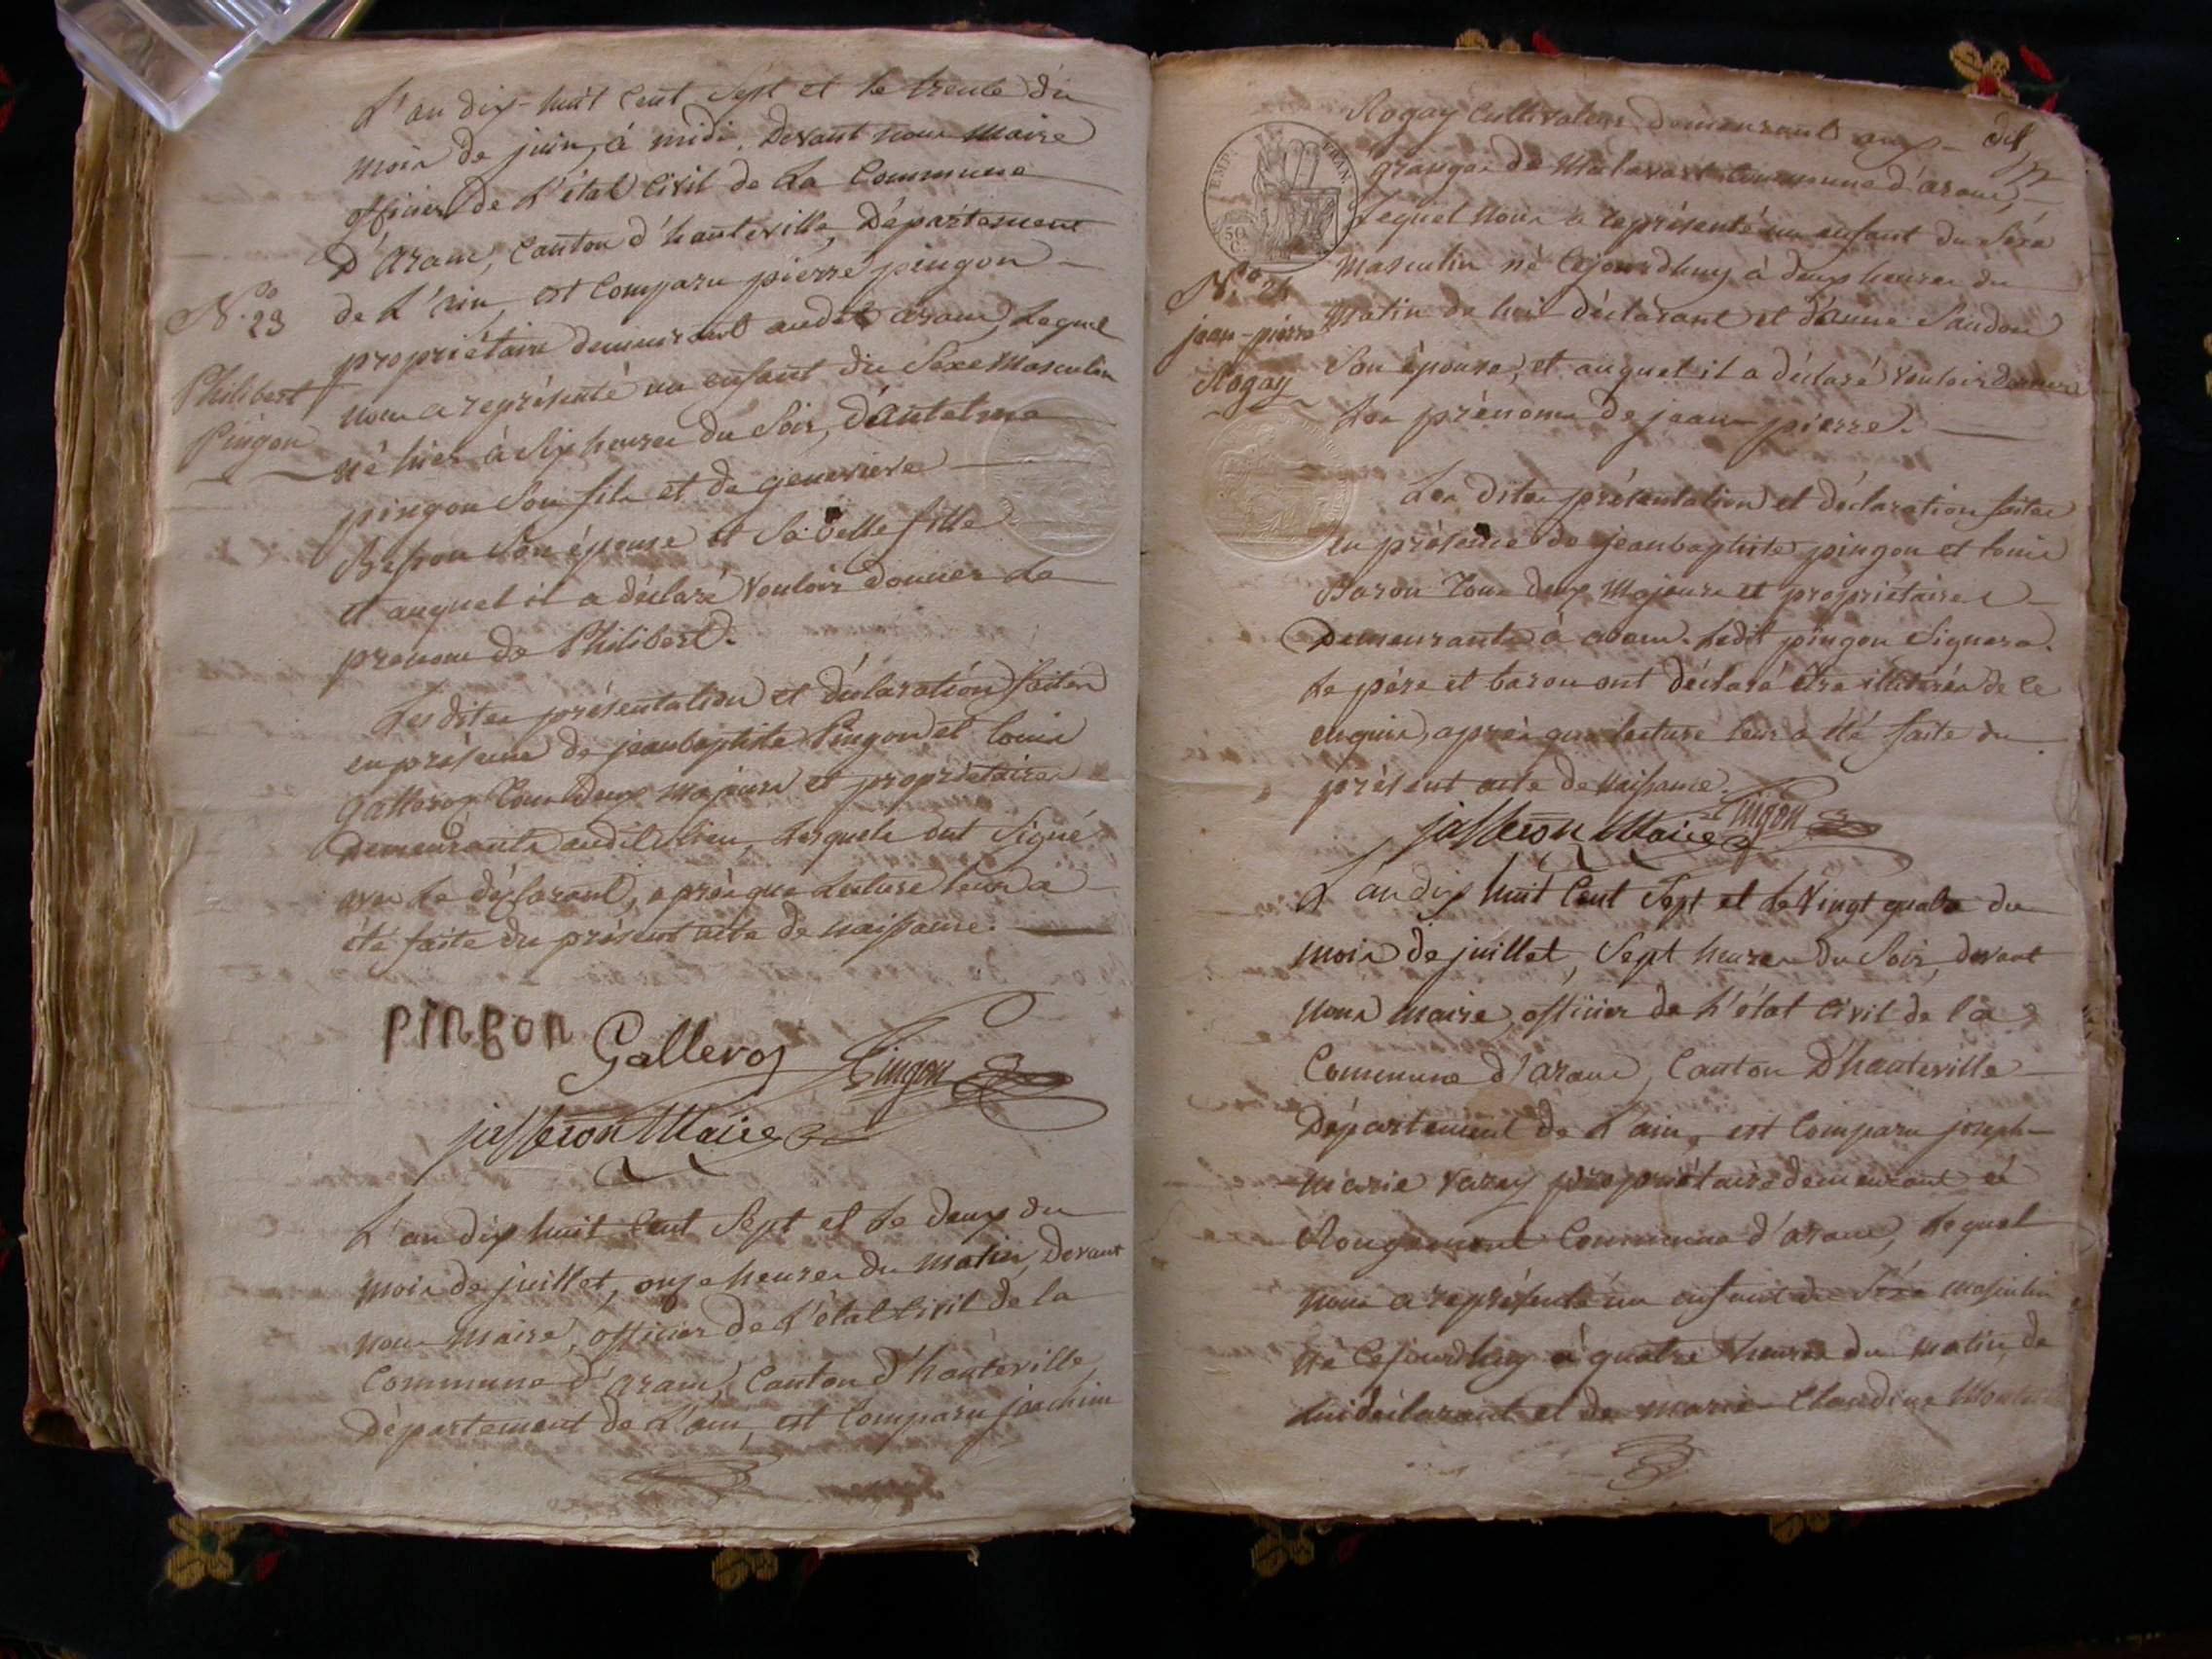 L'an dix-huit Cent Sept et le trente du
mois de juin, à midi, Devant nous Maire
officier de L'état Civil de La Commune
D'Aranc, Canton d'hauteville, Département
de L'ain, est Comparu pierre pingon
N.o 23
propriétaire demeurant audit aranc, Lequel
Philibert Pingon
nous a représenté un enfant du Sexe Masculin
né hier à Six heures du Soir, d'Antelme
pingon Son fils et de genevieve
Besson Son épouse et Sa belle fille
et auquel il a déclaré Vouloir donner Le
prenom de Philibert.
Les dites présentation et déclaration faites
en présence de jeanbaptiste Pingon et louis
galleroz Tous deux majeurs et propriétaires
Demeurants audit lieu, Lesquels ont Signé
avec Le déclarant, après que Lecture leur a
été faite du présent acte de naissance.
pingon Galleroz Pingon
jasseron Maire
L'an dix huit Cent Sept et Le deux du
mois de juillet, onze heures du matin, Devant
nous Maire, officier de L'état Civil de la
Commune d'aranc, Canton d'hauteville
Département de L'ain, est Comparu joachim
Rogay Cultivateur demeurant aux
granges de Malaval Commune d'aranc,
Lequel Nous a représenté un enfant du Séxe
EMP. FRAN.
50 C.
Masculin né Cejourdhuy à deux heures du
N.o 24
matin de lui déclarant et d'anne
jean-pierre Rogay
Son épouse, et auquel il a déclaré Vouloir donner
Les prénoms de jean pierre.
Les dites présentation et déclaration faites
en présence de jeanbaptiste pingon et louis
Baron Tous deux Majeurs et propriétaires
Demeurants à aranc. Ledit pingon Signera.
Le père et baron ont déclaré être illitérés de ce
enquis, après que lecture leur a été faite du
présent acte de Naissance.
jasseron Maire Pingon
L'an dix huit Cent Sept et Le Vingt quatre du
mois de juillet, Sept heures du Soir, devant
Nous Maire, officier de L'état Civil de la
Commune d'aranc, Canton D'hauteville
Département de L'ain, est Comparu joseph
marie Varey propriétaire demeurant à
Rougemont Commune d'aranc, Lequel
nous a représenté un enfant du Séxe masculin
Né Cejourdhuy à quatre heures du matin, de
lui déclarant et de marie Claudine